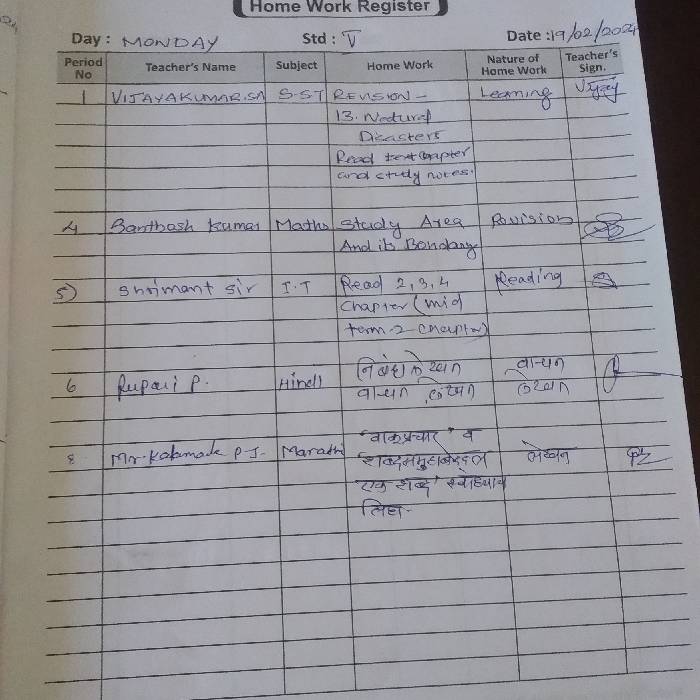 Home Work Register
Day : MONDAY Std : V Date : 19/02/2024
Period No Teacher's Name Subject Home Work Nature of Home Work Teacher's Sign.
1 VIJAYAKUMAR.SA S.ST REVISION - Learning Vijay
13. Natural
Disasters
Read text chapter
and study notes.
4 Santhosh kumar Maths Study Area Revision
And its Bondary
5) Shrimant sir I.T Read 2,3,4 Reading
Chapter (mid
term-2 chapter)
6 Rupali P. Hindi निबंध लेखन वाचन
वाचन लेखन लेखन
8 Mr. P.J. Marathi वाक्प्रचार व लेखन
शब्दसमुहाबद्दल
एक शब्द स्वाध्याय
लिहा.